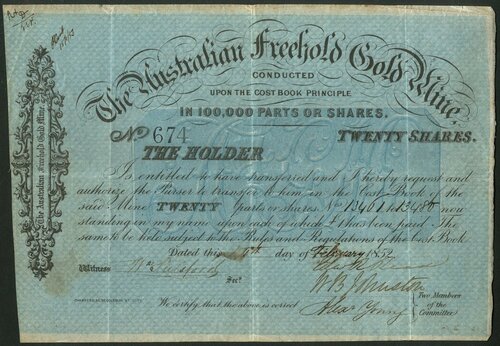 The Australian Freehold Gold Mine.
The Australian Freehold Gold Mine.
CONDUCTED
UPON THE COST BOOK PRINCIPLE
IN 100,000 PARTS OR SHARES.
No 674
TWENTY SHARES.
THE HOLDER
Is entitled to have transferred and I hereby request and
authorize the Purser to transfer to him in the Cost Book of the
said Mine TWENTY parts or shares No 13461 to 13480 now
standing in my name upon each of which £1 has been paid. The
same to be held subject to the Rules and Regulations of the Cost Book
Dated this 6th day of February 1852
Witness
Secy
W B Johnston
We certify that the above is correct
Alexr Young
Two Members
of the
Committee